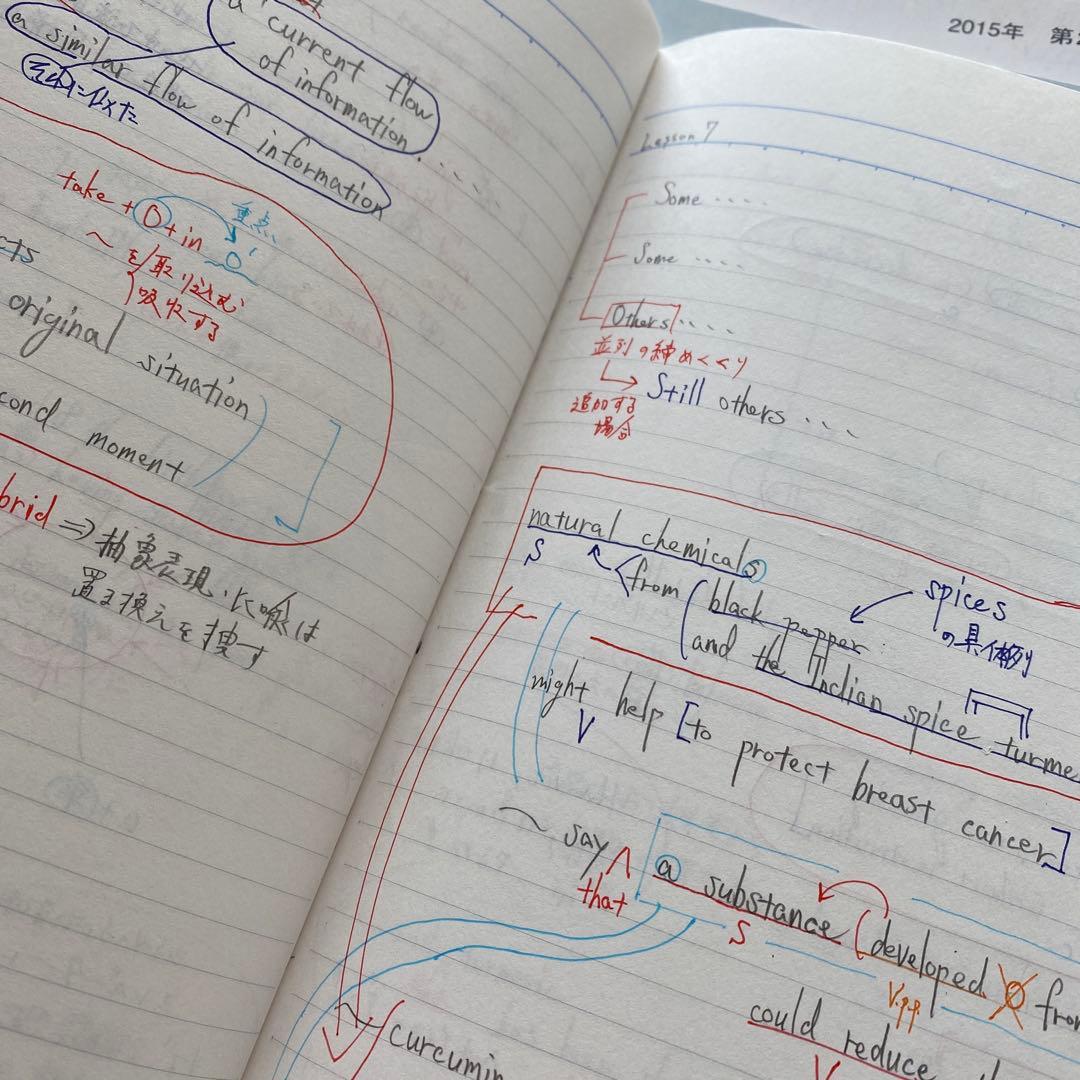 a current flow
of information....
a similar flow of information
それに似た
take + O + in O'
重点
〜を取り込む
吸収する
original situation
moment
⇒ 抽象表現・比喩は
置き換えを捜す
2015年 第
Lesson 7
Some ....
Some ....
Others ....
並列の締めくくり
→ Still others ...
追加する
場合
natural chemicals
S
from black pepper
and the Indian spice turme
spices
の具体例
might help [to protect breast cancer]
V
〜 say ∧ a substance (developed from
that
S
Vp.p.
could reduce
V
〜 curcumin